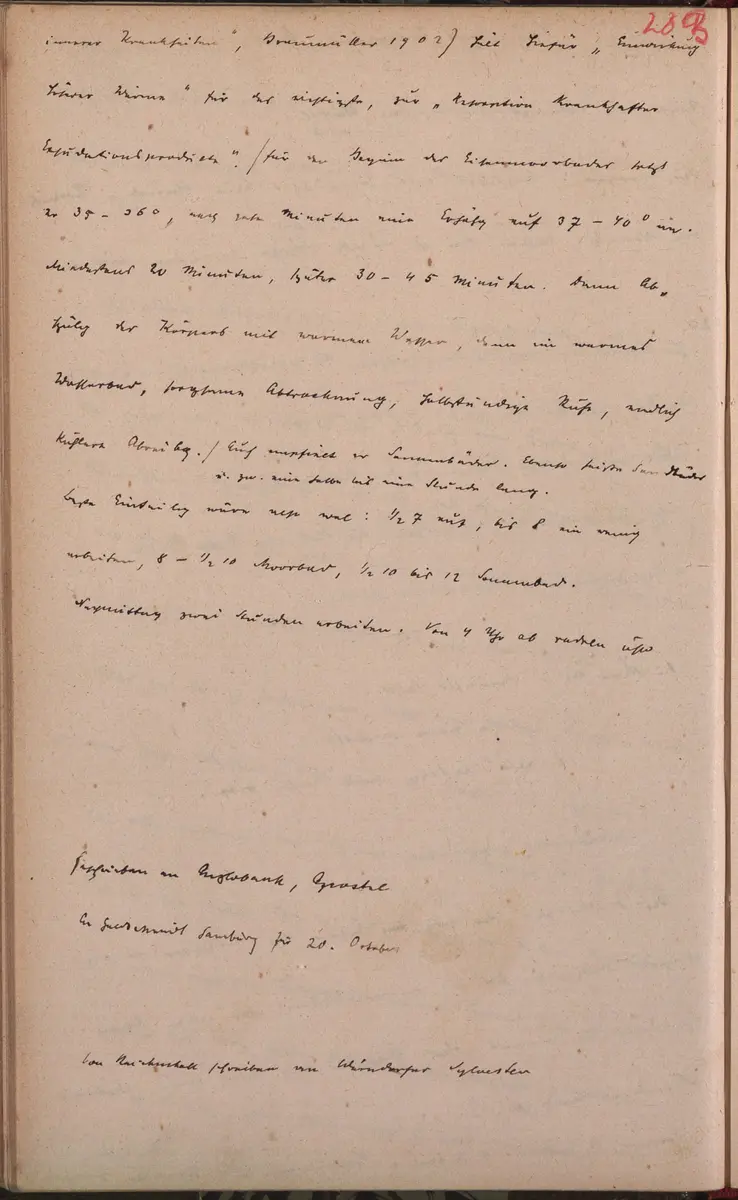 289
innerer Krankheiten", Braumüller 1902) hält hiefür „Einwirkung
höherer Wärme" für das wichtigste, zur „Resorption krankhafter
Exsudationsprodukte". / Für den Beginn des Eisenmoorbades setzt
er 35 – 36°, nach zehn Minuten eine Erhöhg auf 37 – 40° an.
Mindestens 20 Minuten, später 30 – 45 Minuten. Dann Ab„
spülg des Körpers mit warmem Wasser, dann ein warmes
Wasserbad, sorgsame Abtrocknung, halbstündige Ruhe, endlich
kühlere Abreibg. / Auch empfielt er Sonnenbäder. Ebenso heiße Sandbäder
u. zw. eine halbe bis eine Stunde lang.
beste Einteilg wäre also wol: ½ 7 auf, bis 8 ein wenig
arbeiten, 8 – ½ 10 Moorbad, ½ 10 bis 12 Sonnenbad.
Nachmittag zwei Stunden arbeiten. Von 4 Uhr ab radeln usw
Geschrieben an Anglobank, Apostel
An Goldschmidt Hamburg für 20. October
Von Reichenhall schreiben an Wärndorfer Sylvester